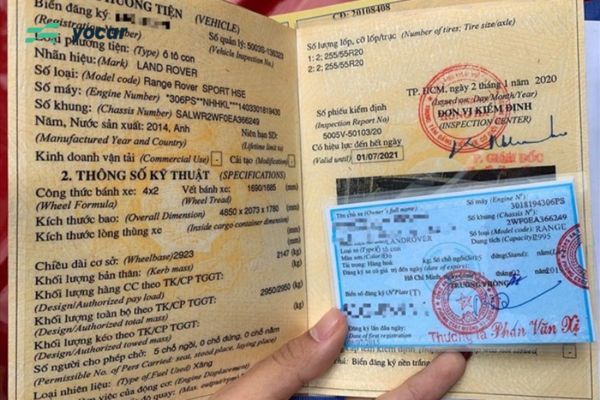 yocar
PHƯƠNG TIỆN (VEHICLE)
Biển đăng ký
(Registration Number)
Số quản lý: 5003S-136323
(Vehicle Inspection No.)
Loại phương tiện: (Type) ô tô con
Nhãn hiệu: (Mark) LAND ROVER
Số loại: (Model code) Range Rover SPORT HSE
Số máy: (Engine Number) *306PS**NHHKL***140330181943G
Số khung: (Chassis Number) SALWR2WF0EA366249
Năm, Nước sản xuất: 2014, Anh
Niên hạn SD:
(Manufactured Year and Country)
(Lifetime limit to)
Kinh doanh vận tải (Commercial Use) - Cải tạo (Modification) -
2. THÔNG SỐ KỸ THUẬT (SPECIFICATIONS)
Công thức bánh xe: 4x2 Vết bánh xe: 1690/1685 (mm)
(Wheel Formula) (Wheel Tread)
Kích thước bao: (Overall Dimension) 4850 x 2073 x 1780 (mm)
Kích thước lòng thùng xe: (mm)
(Inside cargo container dimension)
Chiều dài cơ sở: 2923 (mm)
(Wheelbase)
Khối lượng bản thân: 2147 (kg)
(Kerb mass)
Khối lượng hàng CC theo TK/CP TGGT:
(Design/Authorized pay load)
Khối lượng toàn bộ theo TK/CP TGGT: 2950/2950 (kg)
(Design/Authorized total mass)
Khối lượng kéo theo TK/CP TGGT:
(Design/Authorized towed mass)
Số người cho phép chở: 5 chỗ ngồi, 0 chỗ đứng, 0 chỗ nằm
(Permissible No. of Pers Carried: seat, stood place, laying place)
Loại nhiên liệu: (Type of Fuel Used) Xăng
(Engine Displacement)
CD: 20108408
Số lượng lốp, cỡ lốp/trục (Number of tires; Tire size/axle)
1: 2; 255/55R20
2: 2; 255/55R20
TP. HCM, ngày 2 tháng 1 năm 2020
(Issued on: Day/Month/Year)
Số phiếu kiểm định
ĐƠN VỊ KIỂM ĐỊNH
(Inspection Report No)
(INSPECTION CENTER)
5005V-50103/20
Có hiệu lực đến hết ngày
(Valid until) 01/07/2021
P. GIÁM ĐỐC
Tên chủ xe (Owner's full name)
Số máy (Engine N°)
3018194306PS
Số khung (Chassis N°)
2WF0EA366249
LANDROVER
Số loại (Model code) RANGE
Loại xe (Type) Ô tô con
Dung tích (Capacity) 2995
Màu sơn (Color)
Tải trọng: Hàng hoá
Số chỗ ngồi
Hồ Chí Minh
TRƯỞNG PHÒNG
Biển số đăng ký (N° Plate)
Đăng ký lần đầu ngày
(Date of first registration)
Thượng tá Phan Văn Xị
Biển đăng ký nền trắng